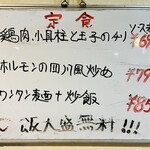 定食
鶏肉、小貝柱と玉子のチリ
ソース
ホルモンの四川風炒め
ワンタン麺+炒飯
¥85
飯大盛無料!!!